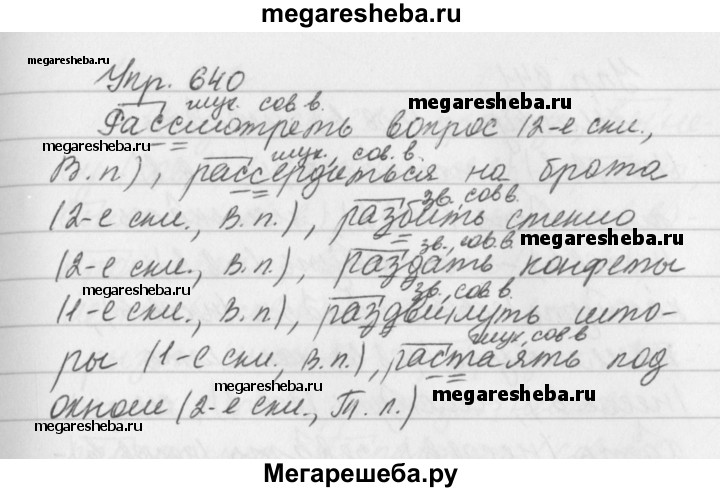 megaresheba.ru
Упр. 640
megaresheba.ru
глух. сов в.
megaresheba.ru
Рассмотреть вопрос (2-е скл.,
megaresheba.ru
глух., сов. в.
В.п.), рассердиться на брата
зв., сов в.
(2-е скл., В.п.), разбить стекло
megaresheba.ru
зв., сов. в.
(2-е скл., В.п.), раздать конфеты
megaresheba.ru
зв., сов в.
(1-е скл., В.п.), раздвинуть што-
глух., сов в
ры (1-е скл., В.п.), растаять под
megaresheba.ru
окном (2-е скл., Т. п.)
megaresheba.ru
megaresheba.ru
Мегарешеба.ру